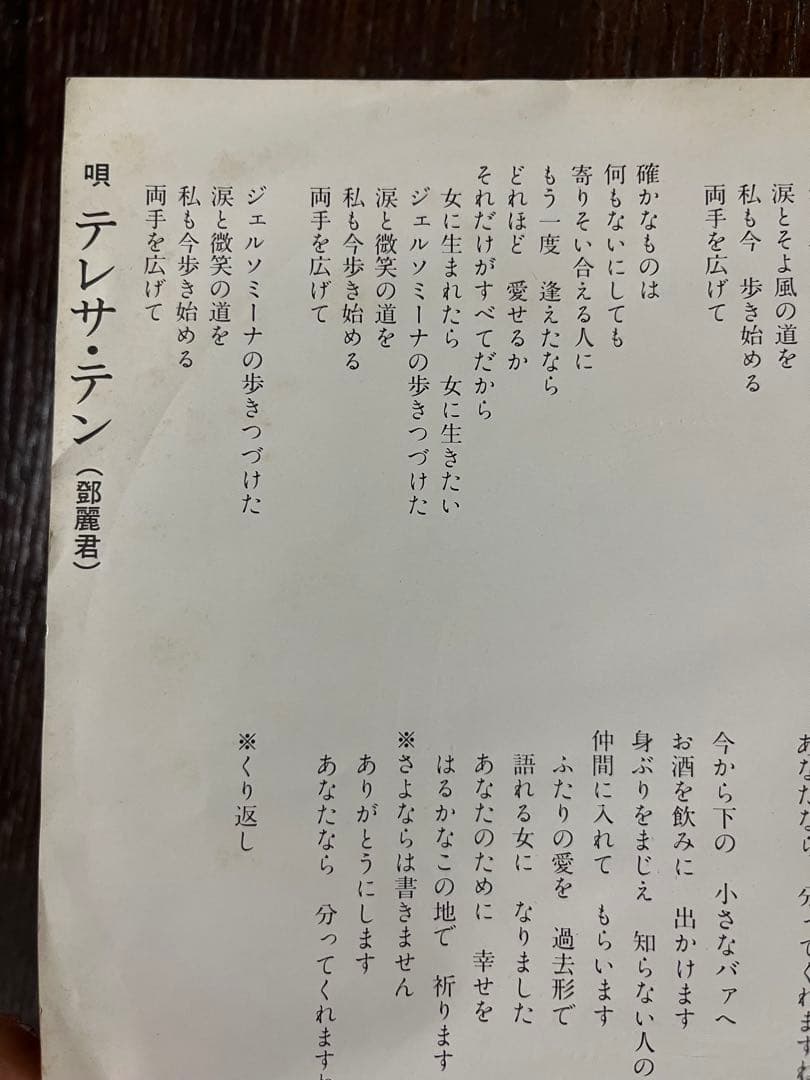 涙とそよ風の道を
私も今　歩き始める
両手を広げて
確かなものは
何もないにしても
寄りそい合える人に
もう一度　逢えたなら
どれほど　愛せるか
それだけがすべてだから
女に生まれたら　女に生きたい
ジェルソミーナの歩きつづけた
涙と微笑の道を
私も今歩き始める
両手を広げて
ジェルソミーナの歩きつづけた
涙と微笑の道を
私も今歩き始める
両手を広げて
唄　テレサ・テン（鄧麗君）
あなたなら　分ってくれますね
今から下の　小さなバァへ
お酒を飲みに　出かけます
身ぶりをまじえ　知らない人の
仲間に入れて　もらいます
ふたりの愛を　過去形で
語れる女に　なりました
あなたのために　幸せを
はるかなこの地で　祈ります
※さよならは書きません
ありがとうにします
あなたなら　分ってくれますね
※くり返し